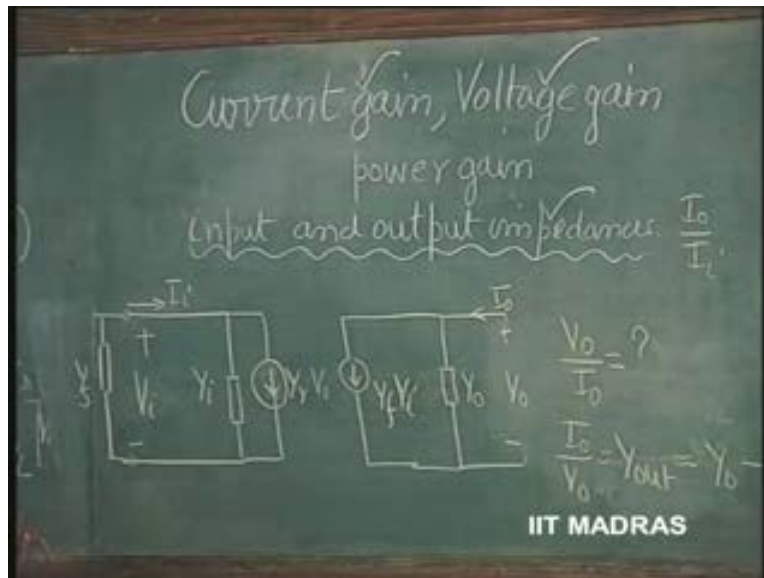 Current gain, Voltage gain
power gain
input and output impedances. Io/Ii
Ii
Io
+
+
Ys
Vi
Yi
Yr Vo
Yf Vi
Yo
Vo
Vo/Io = ?
-
-
Io/Vo = Yout = Yo -
IIT MADRAS